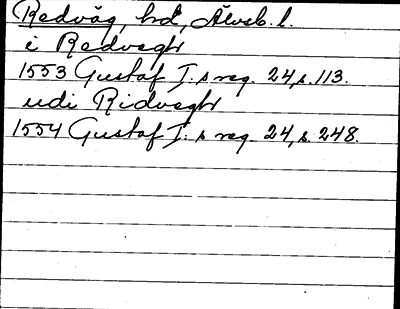 Redväg, hd, Älvsb. l.
i Redvegh
1553 Gustaf I:s reg. 24, s. 113.
udi Ridvegh
1554 Gustaf I:s reg. 24, s. 248.